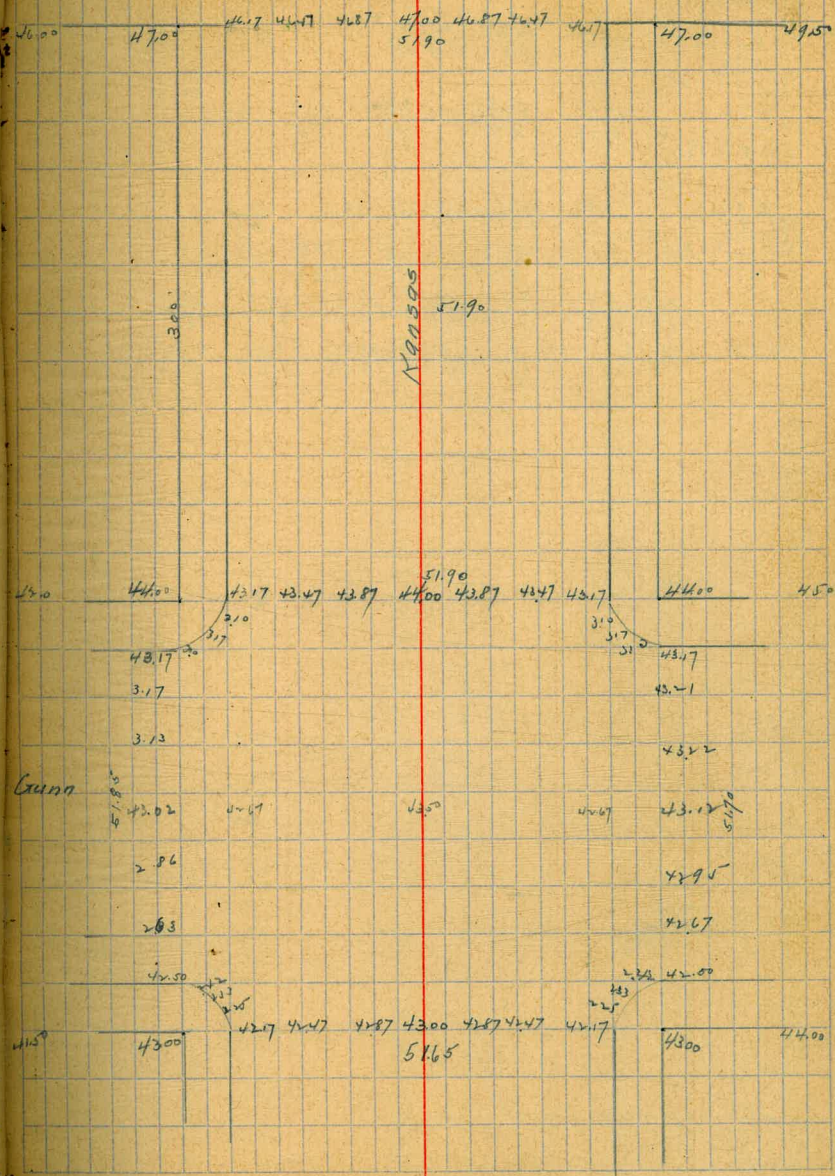 46.00 47.00 46.17 46.47 46.87 47.00 46.87 46.47 46.17 47.00 49.50
51.90
300'
Kansas
51.90
51.90
44.00 43.17 43.47 43.87 44.00 43.87 43.47 43.17 44.00 45.0
3.10 3.10
3.17 3.17
43.17 43.17
3.17 43.21
3.13 43.22
Gunn
43.02 42.67 43.50 42.67 43.12
2.86 42.95
2.63 42.67
42.50 42.00
2.33 2.33
2.25 2.25
41.50 43.00 42.17 42.47 42.87 43.00 42.87 42.47 42.17 43.00 44.00
51.65